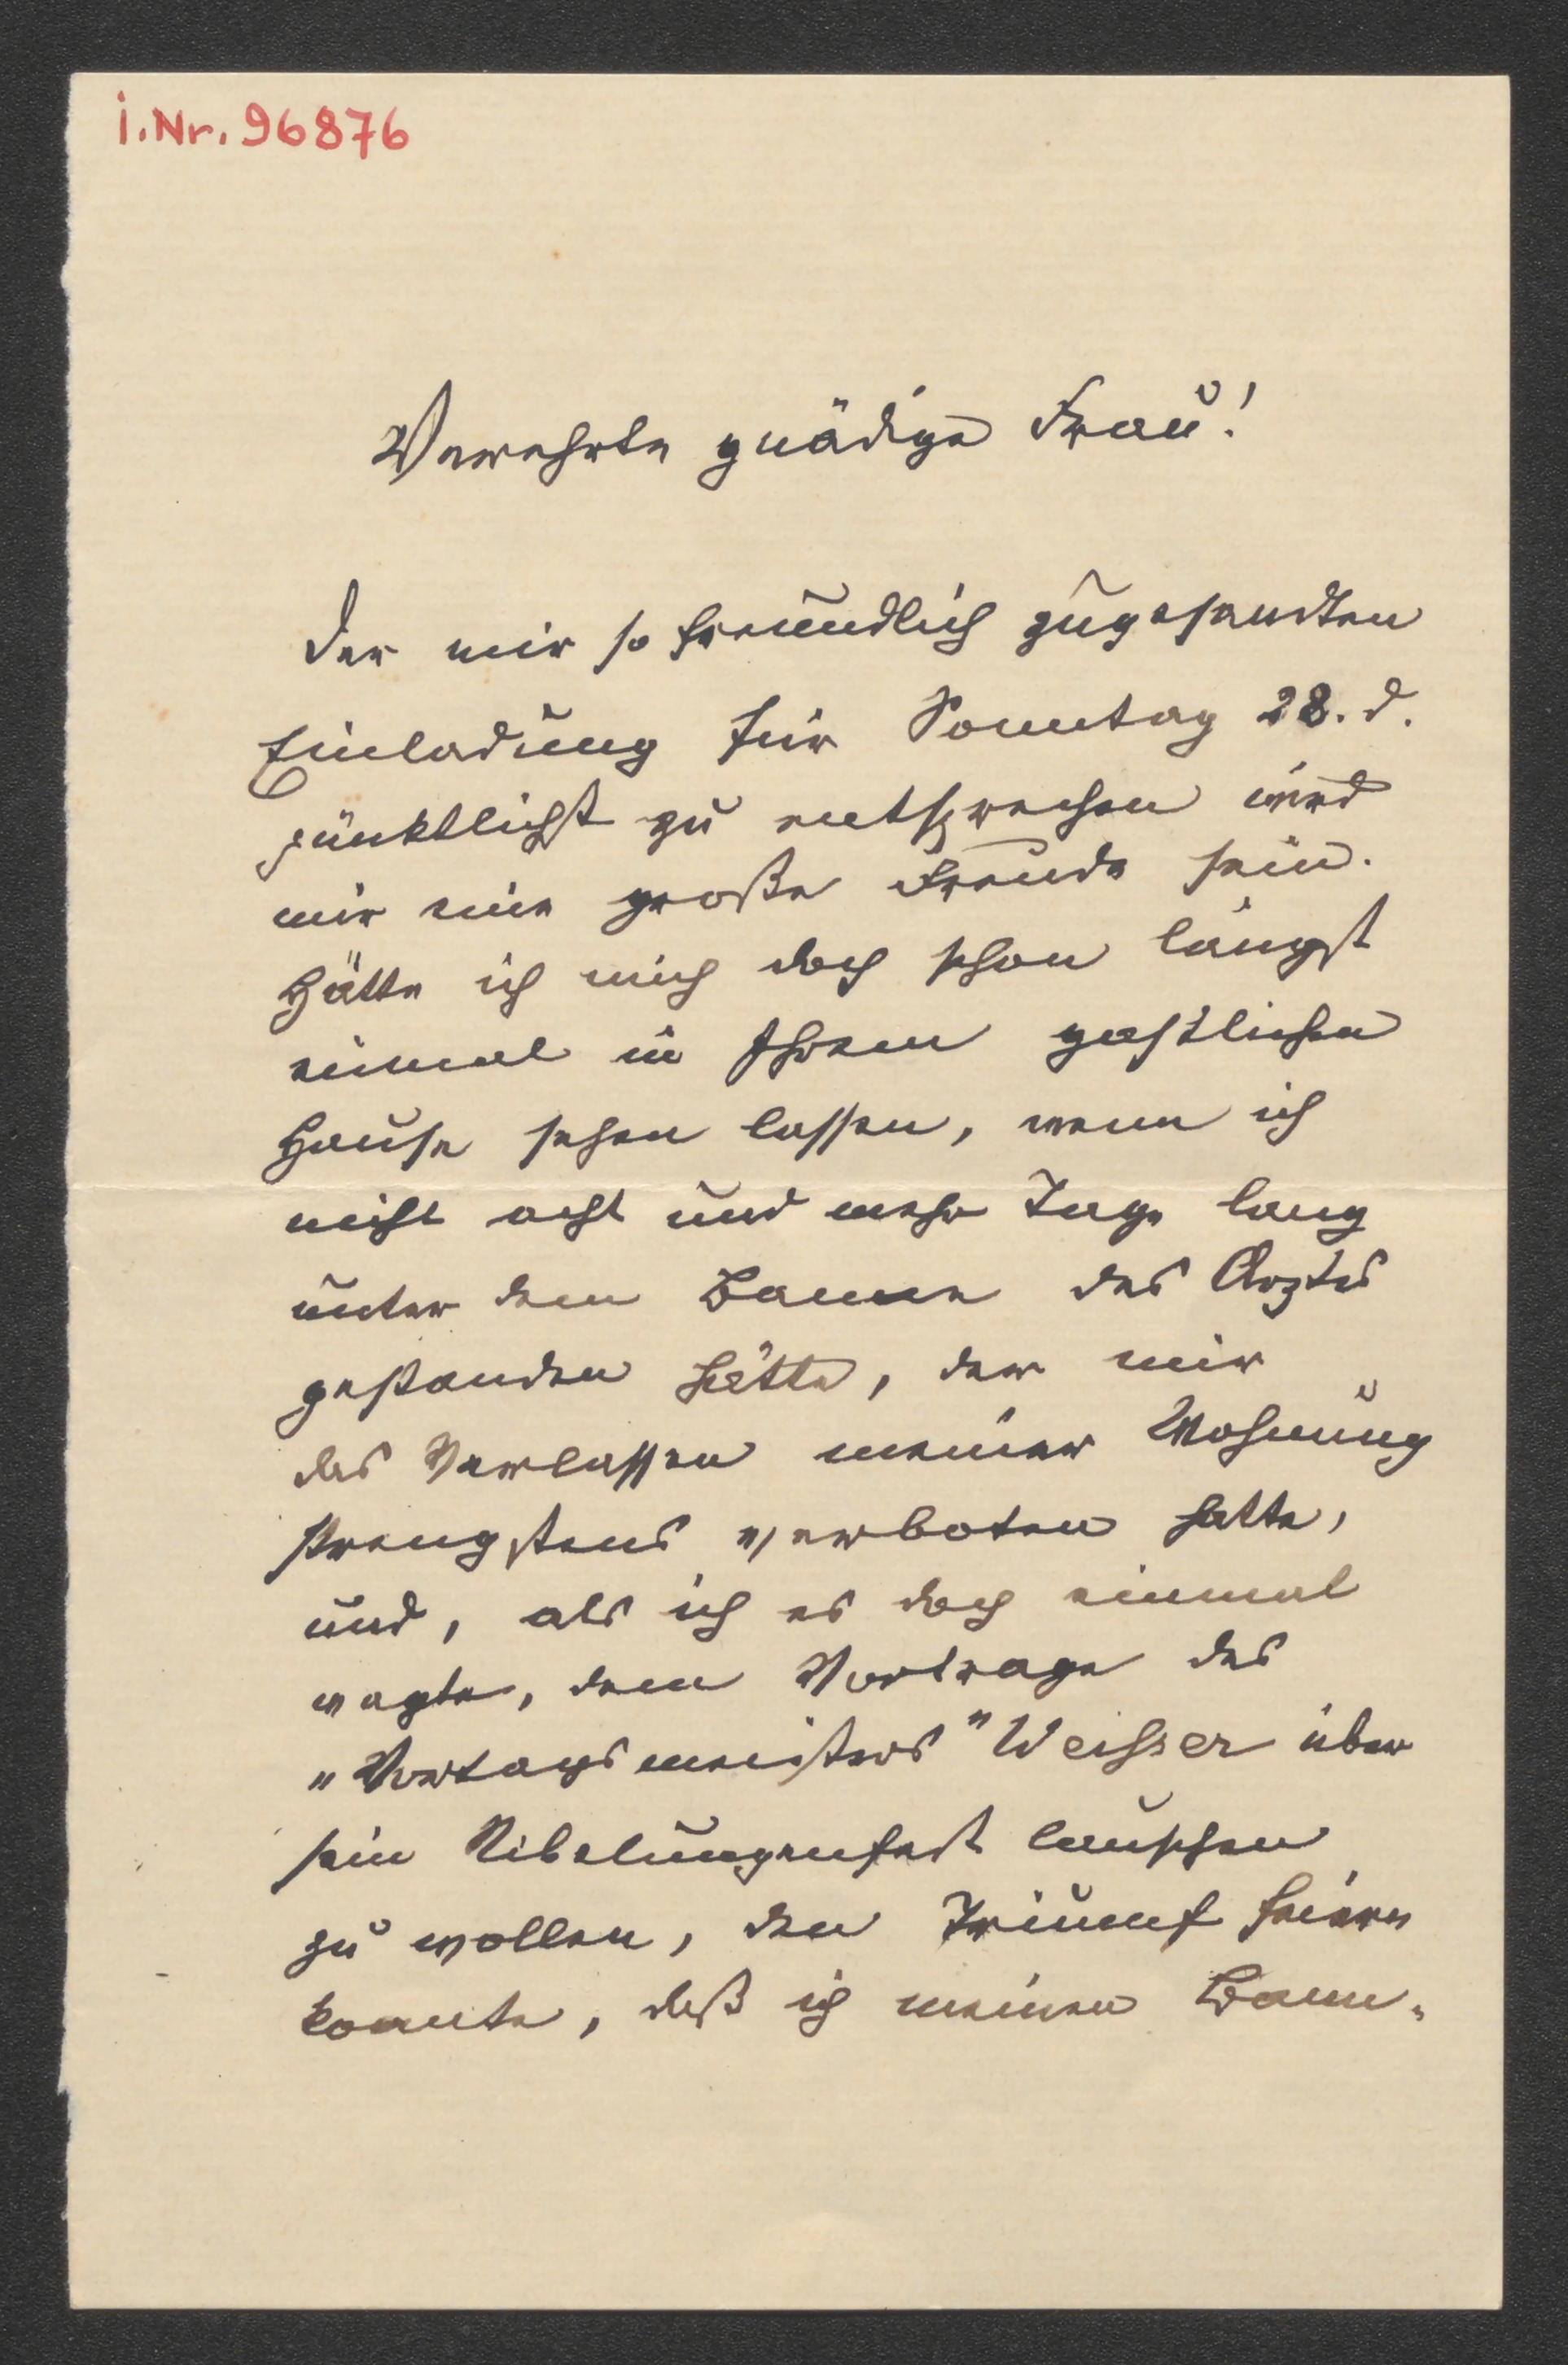 I.Nr. 96876
Verehrte gnädige Frau!
Der mir so freundlich zugesandten
Einladung für Sonntag 28. d.
pünktlichst zu entsprechen wird
mir eine große Freude sein.
Hätte ich mich doch schon längst
einmal in Ihrem gastlichen
Hause sehen lassen, wenn ich
nicht acht und mehr Tage lang
unter dem Banne des Arztes
gestanden hätte, der mir
das Verlassen meiner Wohnung
strengstens verboten hatte,
und, als ich es doch einmal
wagte, dem Vortrage des
„Vortagsmeisters" Weisser über
sein Nibelungenfest lauschen
zu wollen, den Triumf feiern
konnte, daß ich meinen Bann-